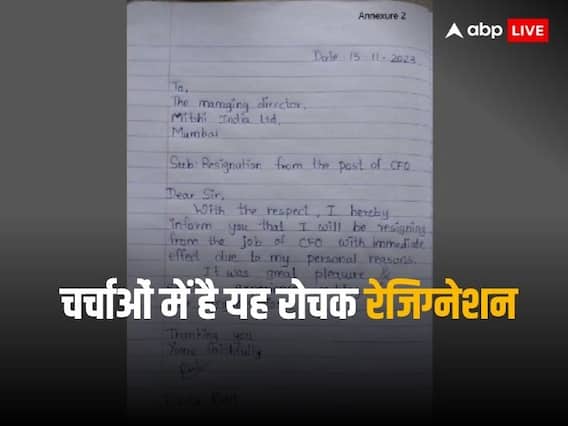 Annexure 2
abp LIVE
Date 15-11-2023
To,
The managing director,
Mitshi India Ltd,
Mumbai
Sub: Resignation from the post of CFO
Dear Sir,
With the respect, I hereby
inform you that I will be resigning
from the job of CFO with immediate
effect due to my personal reasons.
It was great pleasure &
चर्चाओं में है यह रोचक रेजिग्नेशन
Thanking you
Yours faithfully